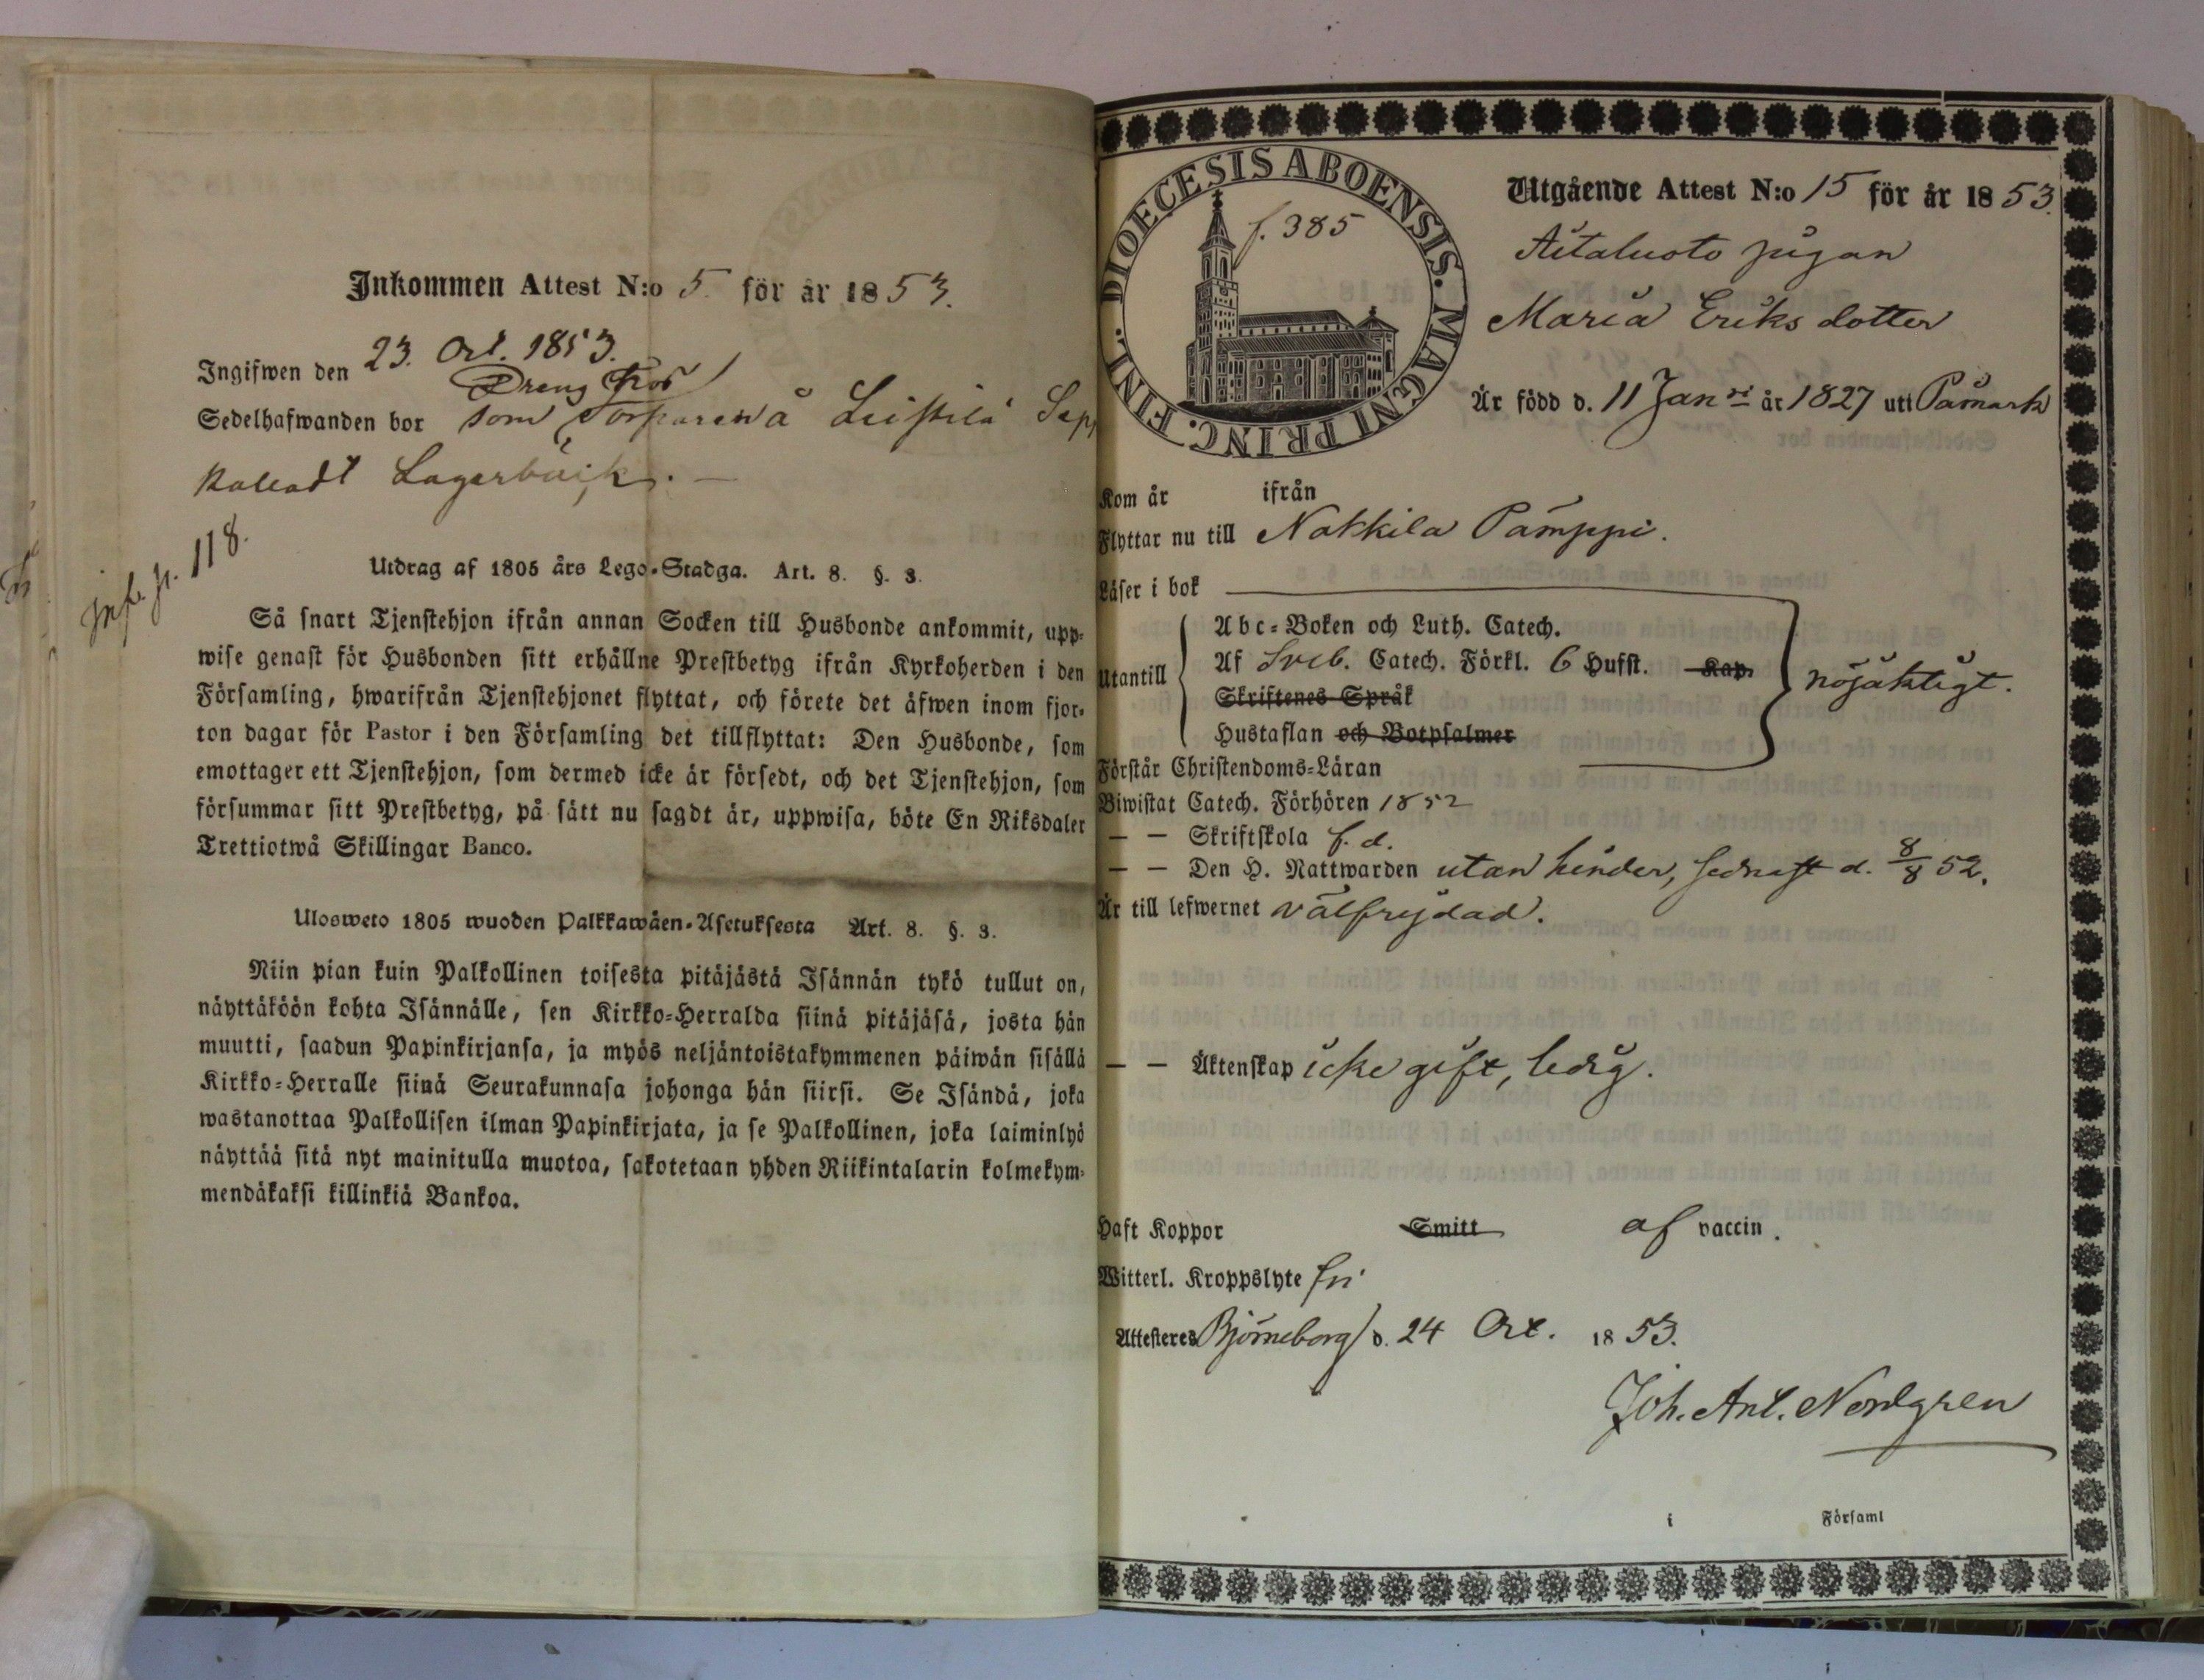 Inkommen Attest N:o 5. för år 1853.
Ingifwen den 23. Oct. 1853.
Dreng
Sedelhafwanden bor som Torparen å Leistilä
kalladt Lagerbäck. —
inf. p. 118.
Utdrag af 1805 års Lego-Stadga. Art. 8. §. 3.
Så snart Tjenstehjon ifrån annan Socken till Husbonde ankommit, upp-
wise genast för Husbonden sitt erhållne Prestbetyg ifrån Kyrkoherden i den
Församling, hwarifrån Tjenstehjonet flyttat, och förete det äfwen inom fjor-
ton dagar för Pastor i den Församling det tillflyttat: Den Husbonde, som
emottager ett Tjenstehjon, som dermed icke är försedt, och det Tjenstehjon, som
försummar sitt Prestbetyg, på sätt nu sagdt är, uppwisa, böte En Riksdaler
Trettiotwå Skillingar Banco.
Ulosweto 1805 wuoden Palkkawäen-Asetuksesta Art. 8. §. 3.
Niin pian kuin Palkollinen toisesta pitäjästä Isännän tykö tullut on,
näyttäköön kohta Isännälle, sen Kirkko-Herralda siinä pitäjäsä, josta hän
muutti, saadun Papinkirjansa, ja myös neljäntoistakymmenen päiwän sisällä
Kirkko-Herralle siinä Seurakunnasa johonga hän siirsi. Se Isändä, joka
wastanottaa Palkollisen ilman Papinkirjata, ja se Palkollinen, joka laiminlyö
näyttää sitä nyt mainitulla muotoa, sakotetaan yhden Riikintalarin kolmekym-
mendäkaksi killinkiä Bankoa.
DIOECESIS ABOENSIS. MAGNI PRINC. FINL.
f. 385
Utgående Attest N:o 15 för år 1853.
Aitaluoto pigan
Maria Eriks dotter
Är född d. 11 Jan:ri år 1827 uti Påmark
Kom år ifrån
Flyttar nu till Nakkila Pamppi.
Läser i bok
Abc-Boken och Luth. Catech.
Utantill Af Sveb. Catech. Förkl. 6 Hufst. Kap. nöjaktigt.
Skriftenes Språk
Hustaflan och Botpsalmer
Förstår Christendoms-Läran
Biwistat Catech. Förhören 1852
— — Skriftskola f. d.
— — Den H. Nattwarden utan hinder, sednast d. 8/8 52.
Är till lefwernet välfrejdad.
— — Äktenskap icke gift, ledig.
Haft Koppor Smitt af vaccin.
Witterl. Kroppslyte fri
Attesteres Björneborg d. 24 Oct. 1853.
Joh. Ant. Nordgren
i Församl